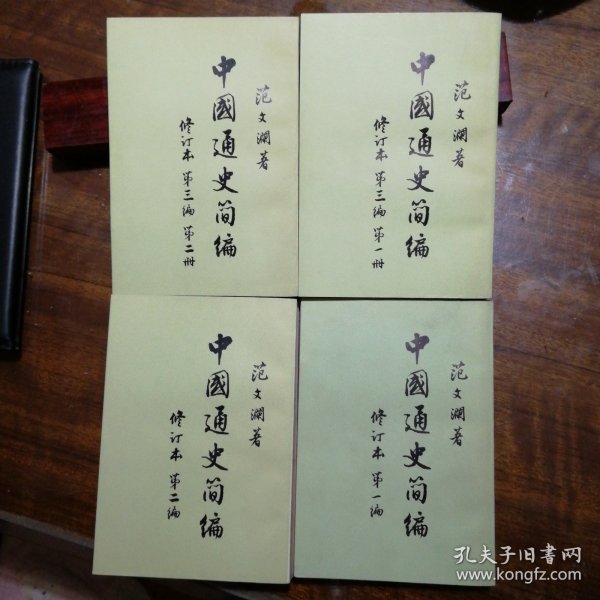 范文澜著
中國通史简编
修订本 第三编 第一册
范文澜著
中國通史简编
修订本 第三编 第二册
范文澜著
中國通史简编
修订本 第一编
范文澜著
中國通史简编
修订本 第二编
孔夫子旧书网
www.kongfz.com